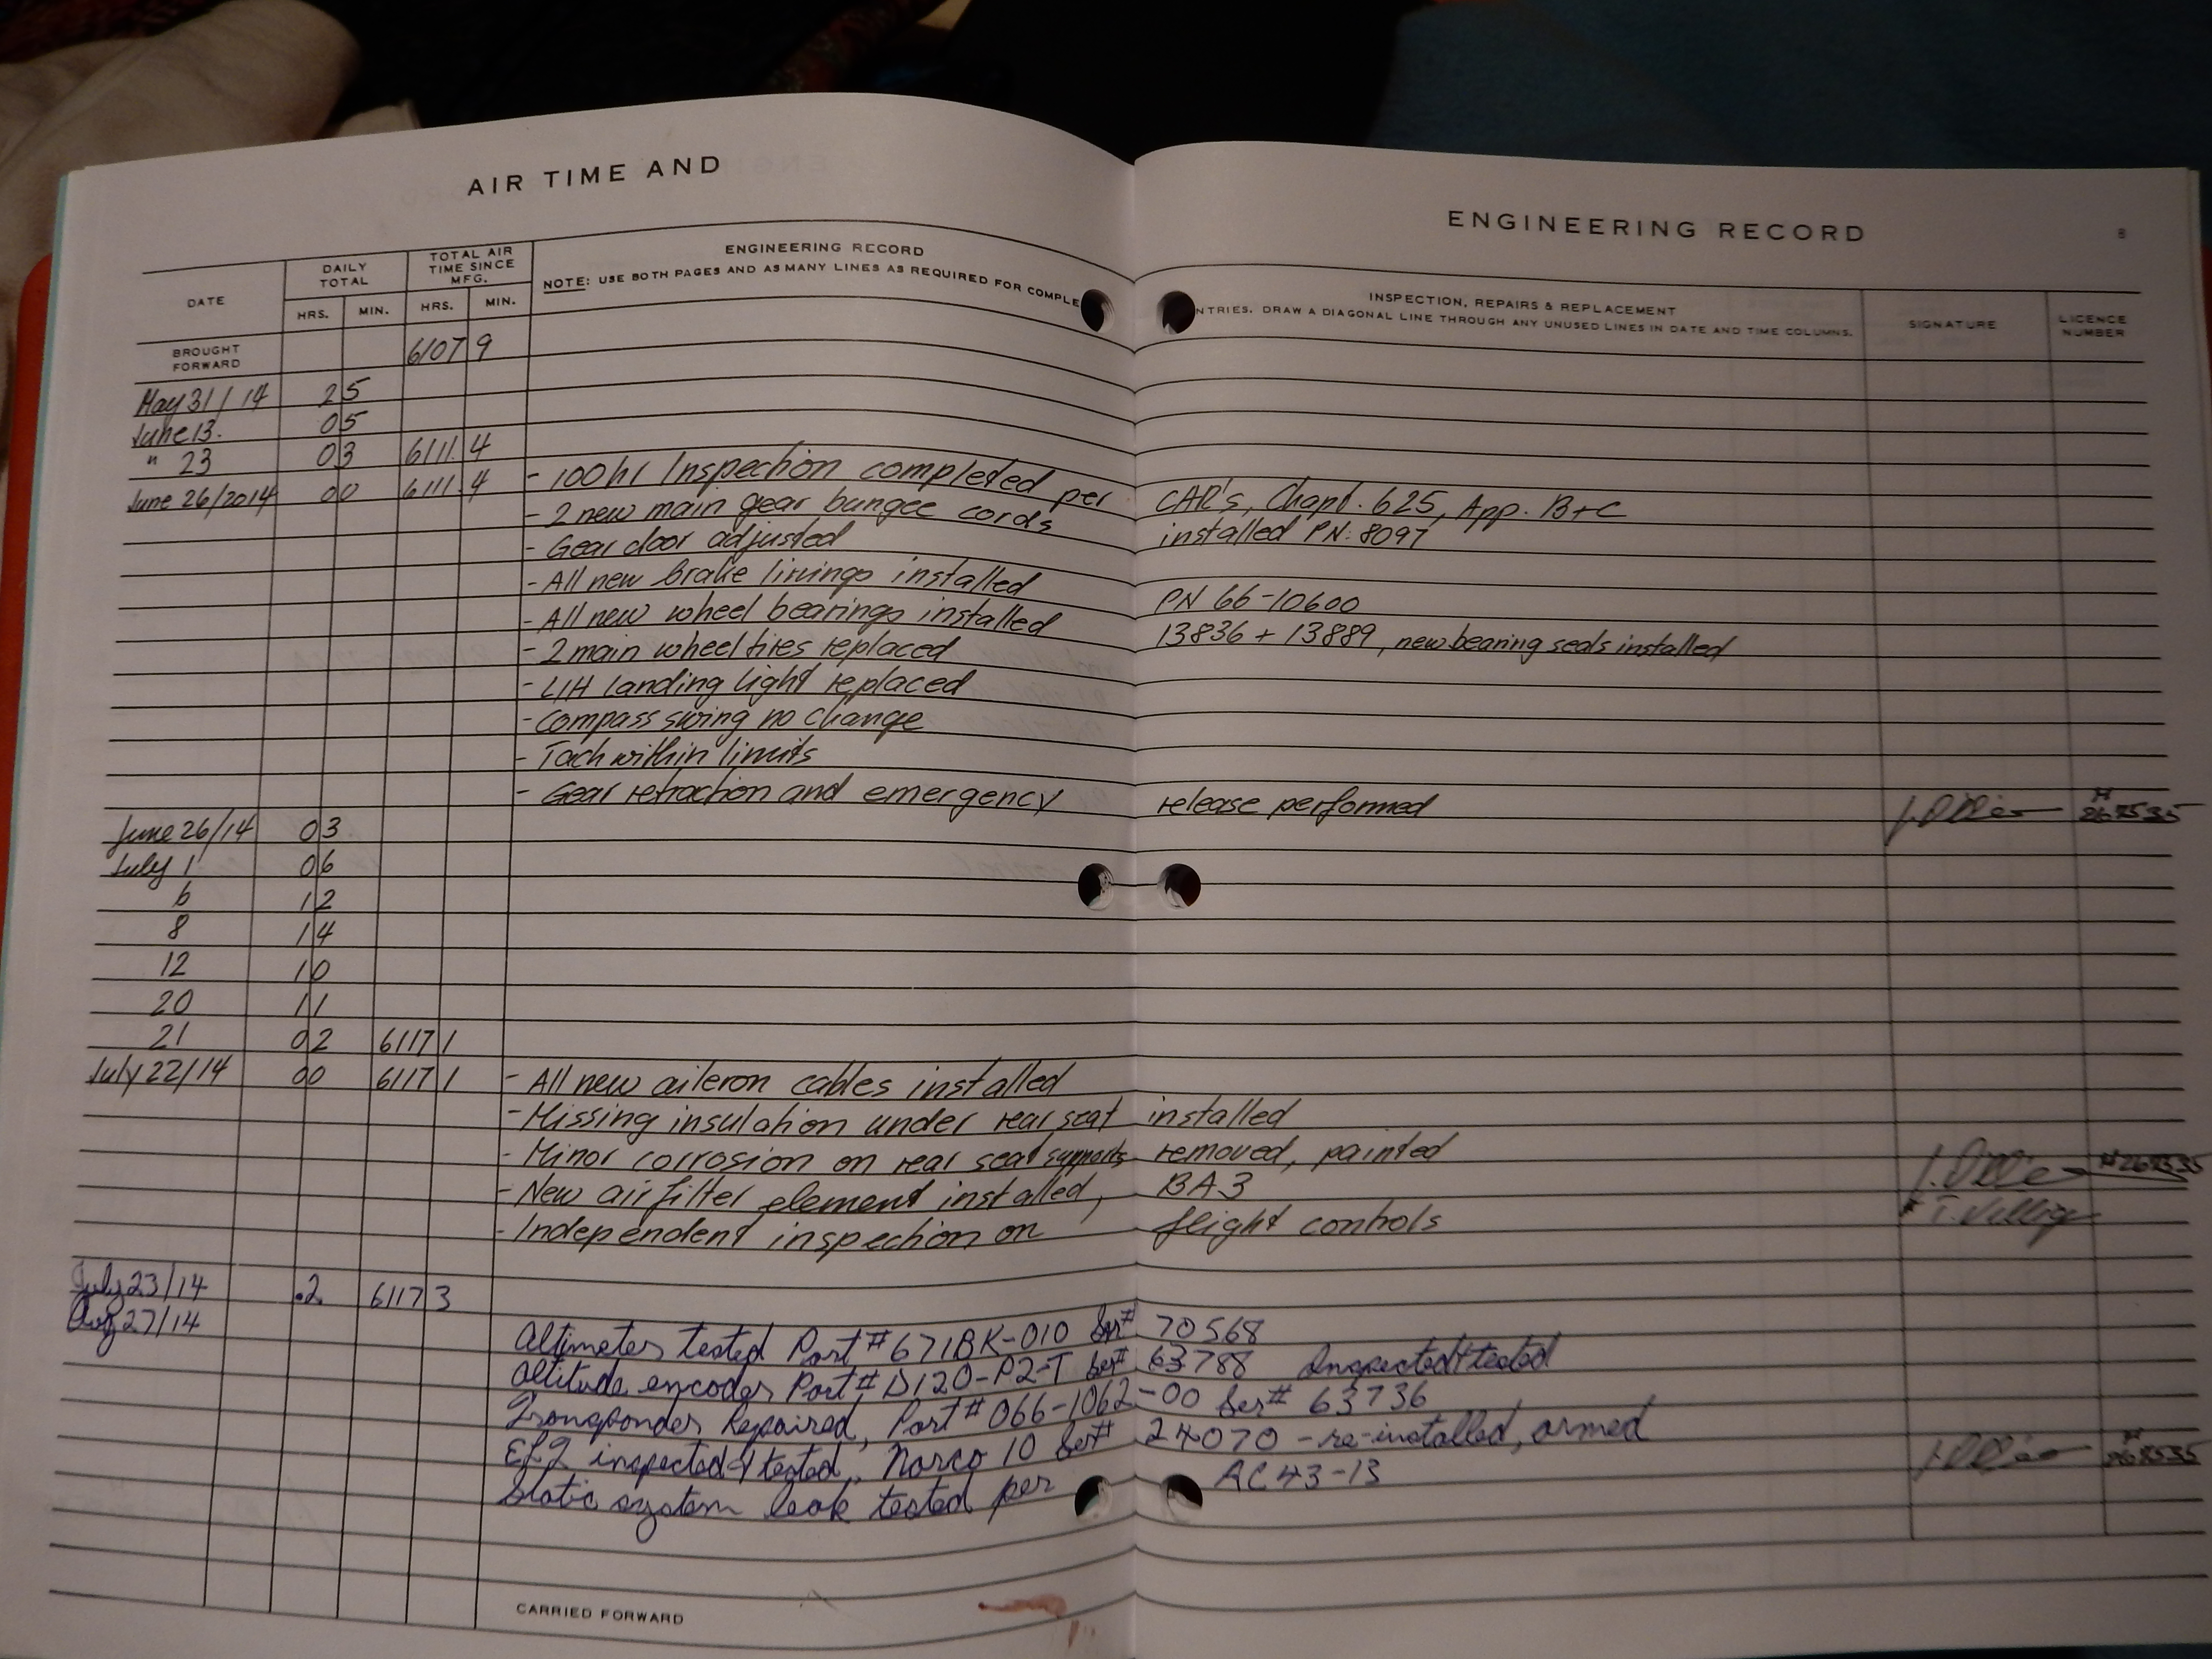 AIR TIME AND ENGINEERING RECORD 8
DATE DAILY TOTAL HRS. MIN. TOTAL AIR TIME SINCE MFG. HRS. MIN. ENGINEERING RECORD INSPECTION, REPAIRS & REPLACEMENT SIGNATURE LICENCE NUMBER
NOTE: USE BOTH PAGES AND AS MANY LINES AS REQUIRED FOR COMPLE NTRIES. DRAW A DIAGONAL LINE THROUGH ANY UNUSED LINES IN DATE AND TIME COLUMNS.
BROUGHT FORWARD 6107 9
May 31/14 2 5
June 13. 0 5
" 23 0 3 6111. 4
June 26/2014 0 0 6111. 4 - 100 hr Inspection completed per CAR's, Chapt. 625, App. B+C
- 2 new main gear bungee cords installed PN: 8097
- Gear door adjusted
- All new brake linings installed PN 66-10600
- All new wheel bearings installed 13836 + 13889, new bearing seals installed
- 2 main wheel tires replaced
- L/H landing light replaced
- Compass swing no change
- Tach within limits
- Gear retraction and emergency release performed
June 26/14 0 3
July 1 0 6
6 1 2
8 1 4
12 1 0
20 1 1
21 0 2 6117 1
July 22/14 0 0 6117 1 - All new aileron cables installed
- Missing insulation under rear seat installed
- Minor corrosion on rear seat supports removed, painted
- New air filter element installed, BA3
- Independent inspection on flight controls
July 23/14 .2 6117 3
Aug 27/14
Altimeter tested Part # 671BK-010 Ser# 70568
Altitude encoder Part # D120-P2-T Ser# 63788 Inspected & tested
Transponder Repaired, Part # 066-1062-00 Ser# 63736
ELT inspected & tested, Narco 10 Ser# 24070 - re-installed, armed
Static system leak tested per AC 43-13
CARRIED FORWARD